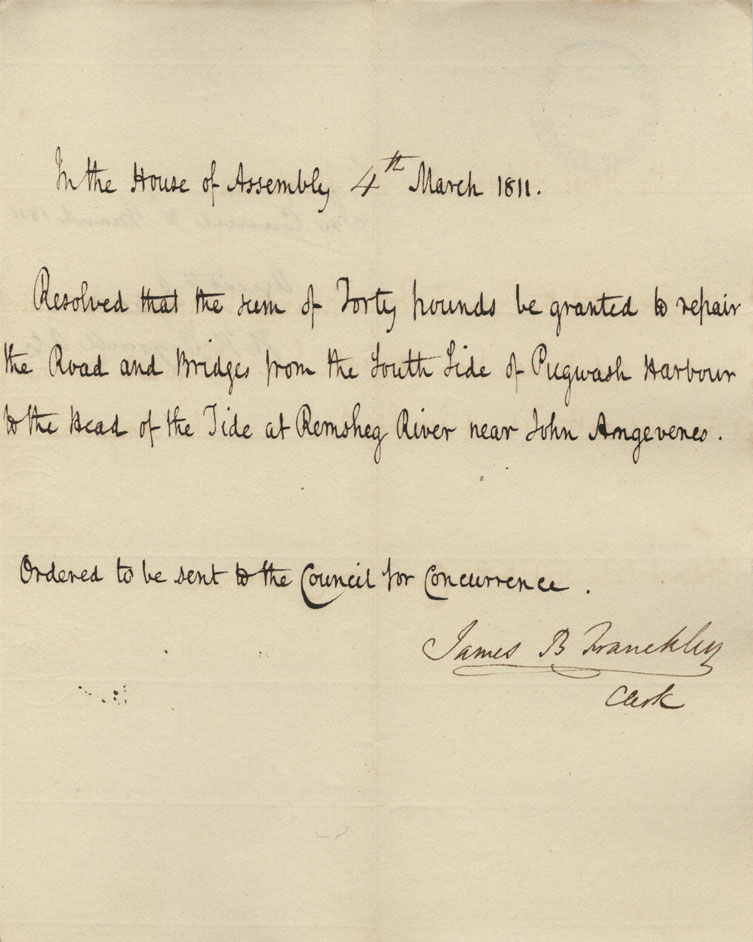 In the House of Assembly 4th March 1811.
Resolved that the sum of Forty pounds be granted to repair
the Road and Bridges from the South Side of Pugwash Harbour
to the Head of the Tide at Remsheg River near John Amgevenes.
Ordered to be sent to the Council for Concurrence.
James B Franckley
Clerk